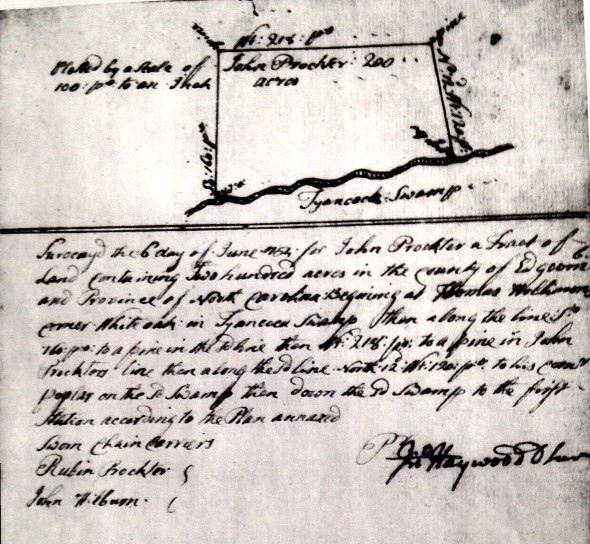 pine
Wt: 218: po
pine
Platted by a Scale of
100: po to an Inch
John Prockter 200
acres
No 12 Wt 120 po
Tyancock Swamp
Survey'd the 6 day of June 1754: for John Prockter a Tract of
Land containing Two hundred acres in the county of Edgcom
and Province of North Carolina Begining at Thomas
corner White oak: in Tyancock Swamp then along the line So
160: po: to a pine in the sd line then Wt: 218: po: to a pine in John
Prockters line then along the sd line North 12: Wt: 120: po to his corner
poplar on the sd Swamp then down the sd Swamp to the first
Station according to the Plan annexed
Sworn Chain Carriers
Rubin Prockter
John Wilburn
Pr Jno Haywood D Sur